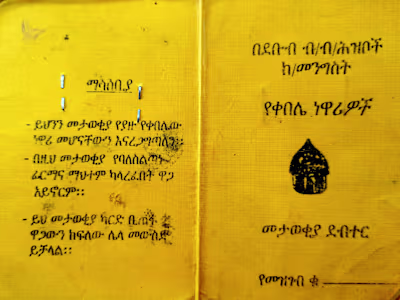 ማሳሰቢያ
- ይህንን መታወቂያ የያዙ የቀበሌው
ነዋሪ መሆናቸውን እናረጋግጣለን፡፡
- በዚህ መታወቂያ የባለስልጣኑ
ፊርማና ማህተም ካላረፈበት ዋጋ
አይኖርም፡፡
- ይህ መታወቂያ ካርድ ቢጠፋ
ዋጋውን ከፍለው ሌላ መውሰድ
ይቻላል፡፡
በደቡብ ብ/ብ/ሕዝቦች
ክ/መንግስት
የቀበሌ ነዋሪዎች
መታወቂያ ደብተር
የመዝገብ ቁ